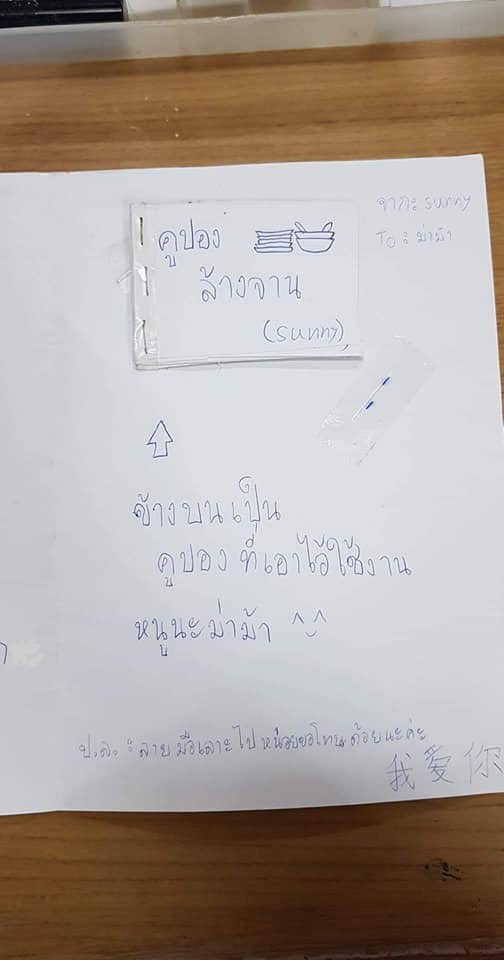 คูปอง
ล้างจาน
(sunny)
จาก: sunny
To : ม่าม้า
ข้างบนเป็น
คูปอง ที่เอาไว้ใช้งาน
หนูนะม่าม้า ^‿^
ป.ล. : ลายมือเลาะไปหน่อยขอโทษด้วยนะค่ะ
我爱你